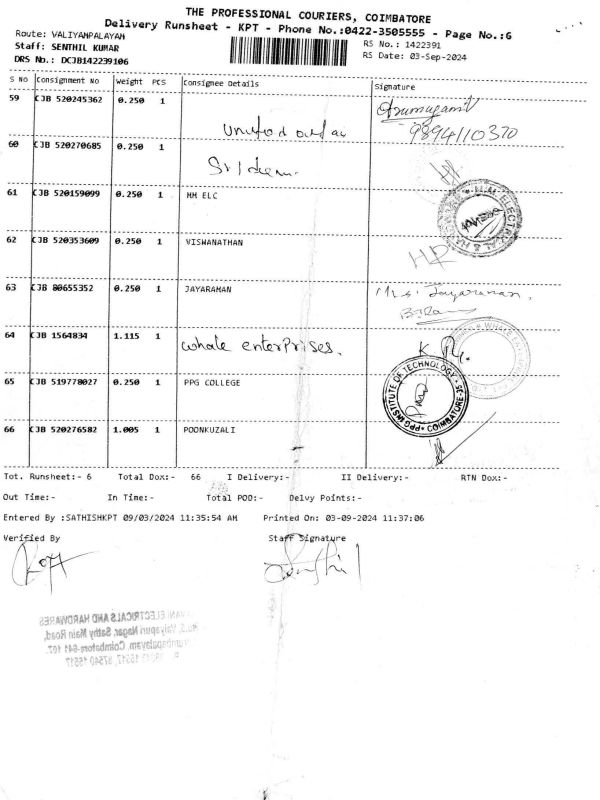 THE PROFESSIONAL COURIERS, COIMBATORE
Delivery Runsheet - KPT - Phone No.:0422-3505555 - Page No.:6
Route: VALIYAMPALAYAM
Staff: SENTHIL KUMAR
DRS No.: DCJB142239106
RS No.: 1422391
RS Date: 03-Sep-2024
S No Consignment No Weight PCS Consignee Details Signature
59 CJB 520245362 0.250 1 Arumugam V
9894110370
60 CJB 520270685 0.250 1
61 CJB 520159099 0.250 1 MM ELC
62 CJB 520353609 0.250 1 VISWANATHAN
63 CJB 80655352 0.250 1 JAYARAMAN Mrs. Jayaraman.
64 CJB 1564834 1.115 1 whale enterprises.
65 CJB 519778027 0.250 1 PPG COLLEGE PPG INSTITUTE OF TECHNOLOGY COIMBATORE-35
66 CJB 520276582 1.005 1 POONKUZALI
Tot. Runsheet:- 6 Total Dox:- 66 I Delivery:- II Delivery:- RTN Dox:-
Out Time:- In Time:- Total POD:- Delvy Points:-
Entered By :SATHISHKPT 09/03/2024 11:35:54 AM Printed On: 03-09-2024 11:37:06
Verified By Staff Signature
ELECTRICALS AND HARDWARES
Valyapuri Nagar, Sathy Main Road,
Coimbatore-641 107.